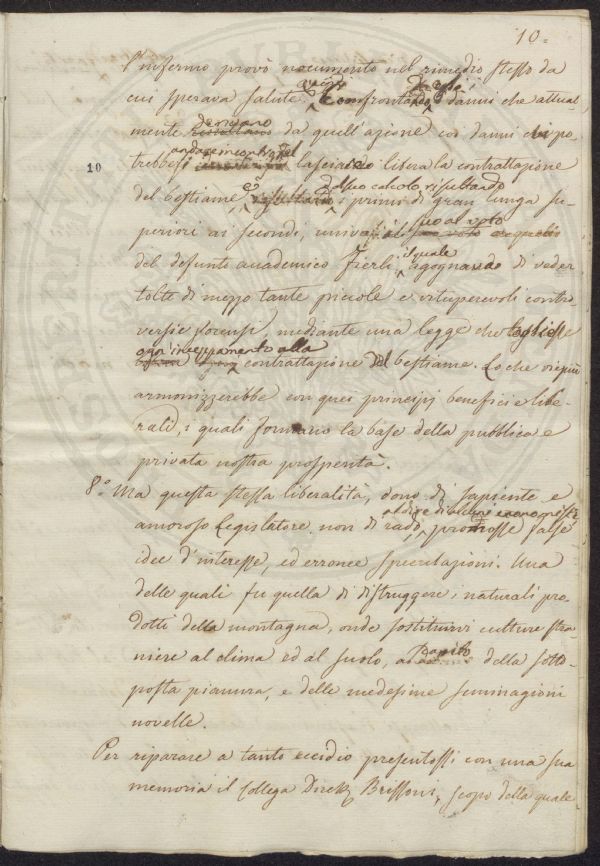 10=
l'infermo provò nocumento nel rimedio stesso da
cui sperava salute. Confrontando i danni che attual-
mente derivano da quell'azione coi danni che po-
10
trebbesi lasciando libera la contrattazione
del bestiame e dal suo calcolo risultando i primi di gran lunga su-
periori ai secondi, univa il suo al voto
del defunto accademico Fierli il quale agognava di veder
tolte di mezzo tante piccole e vituperevoli contro-
versie forensi, mediante una legge che togliesse
ogn'inceppamento alla contrattazione del bestiame. Lo che vie più
armonizzerebbe con quei principj benefici e libe-
rali, i quali formano la base della pubblica e
privata nostra prosperità.
8.° Ma questa stessa liberalità, dono di sapiente e
amoroso Legislatore, non di rado, promosse false
idee d'interesse, ed erronee speculazioni. Una
delle quali fu quella di distruggere i naturali pro-
dotti della montagna, onde sostituirvi culture stra-
niere al clima ed al suolo, a danno della sotto-
posta pianura, e delle medesime seminagioni
novelle.
Per riparare a tanto eccidio presentossi con una sua
memoria il Collega Dirett. scopo della quale